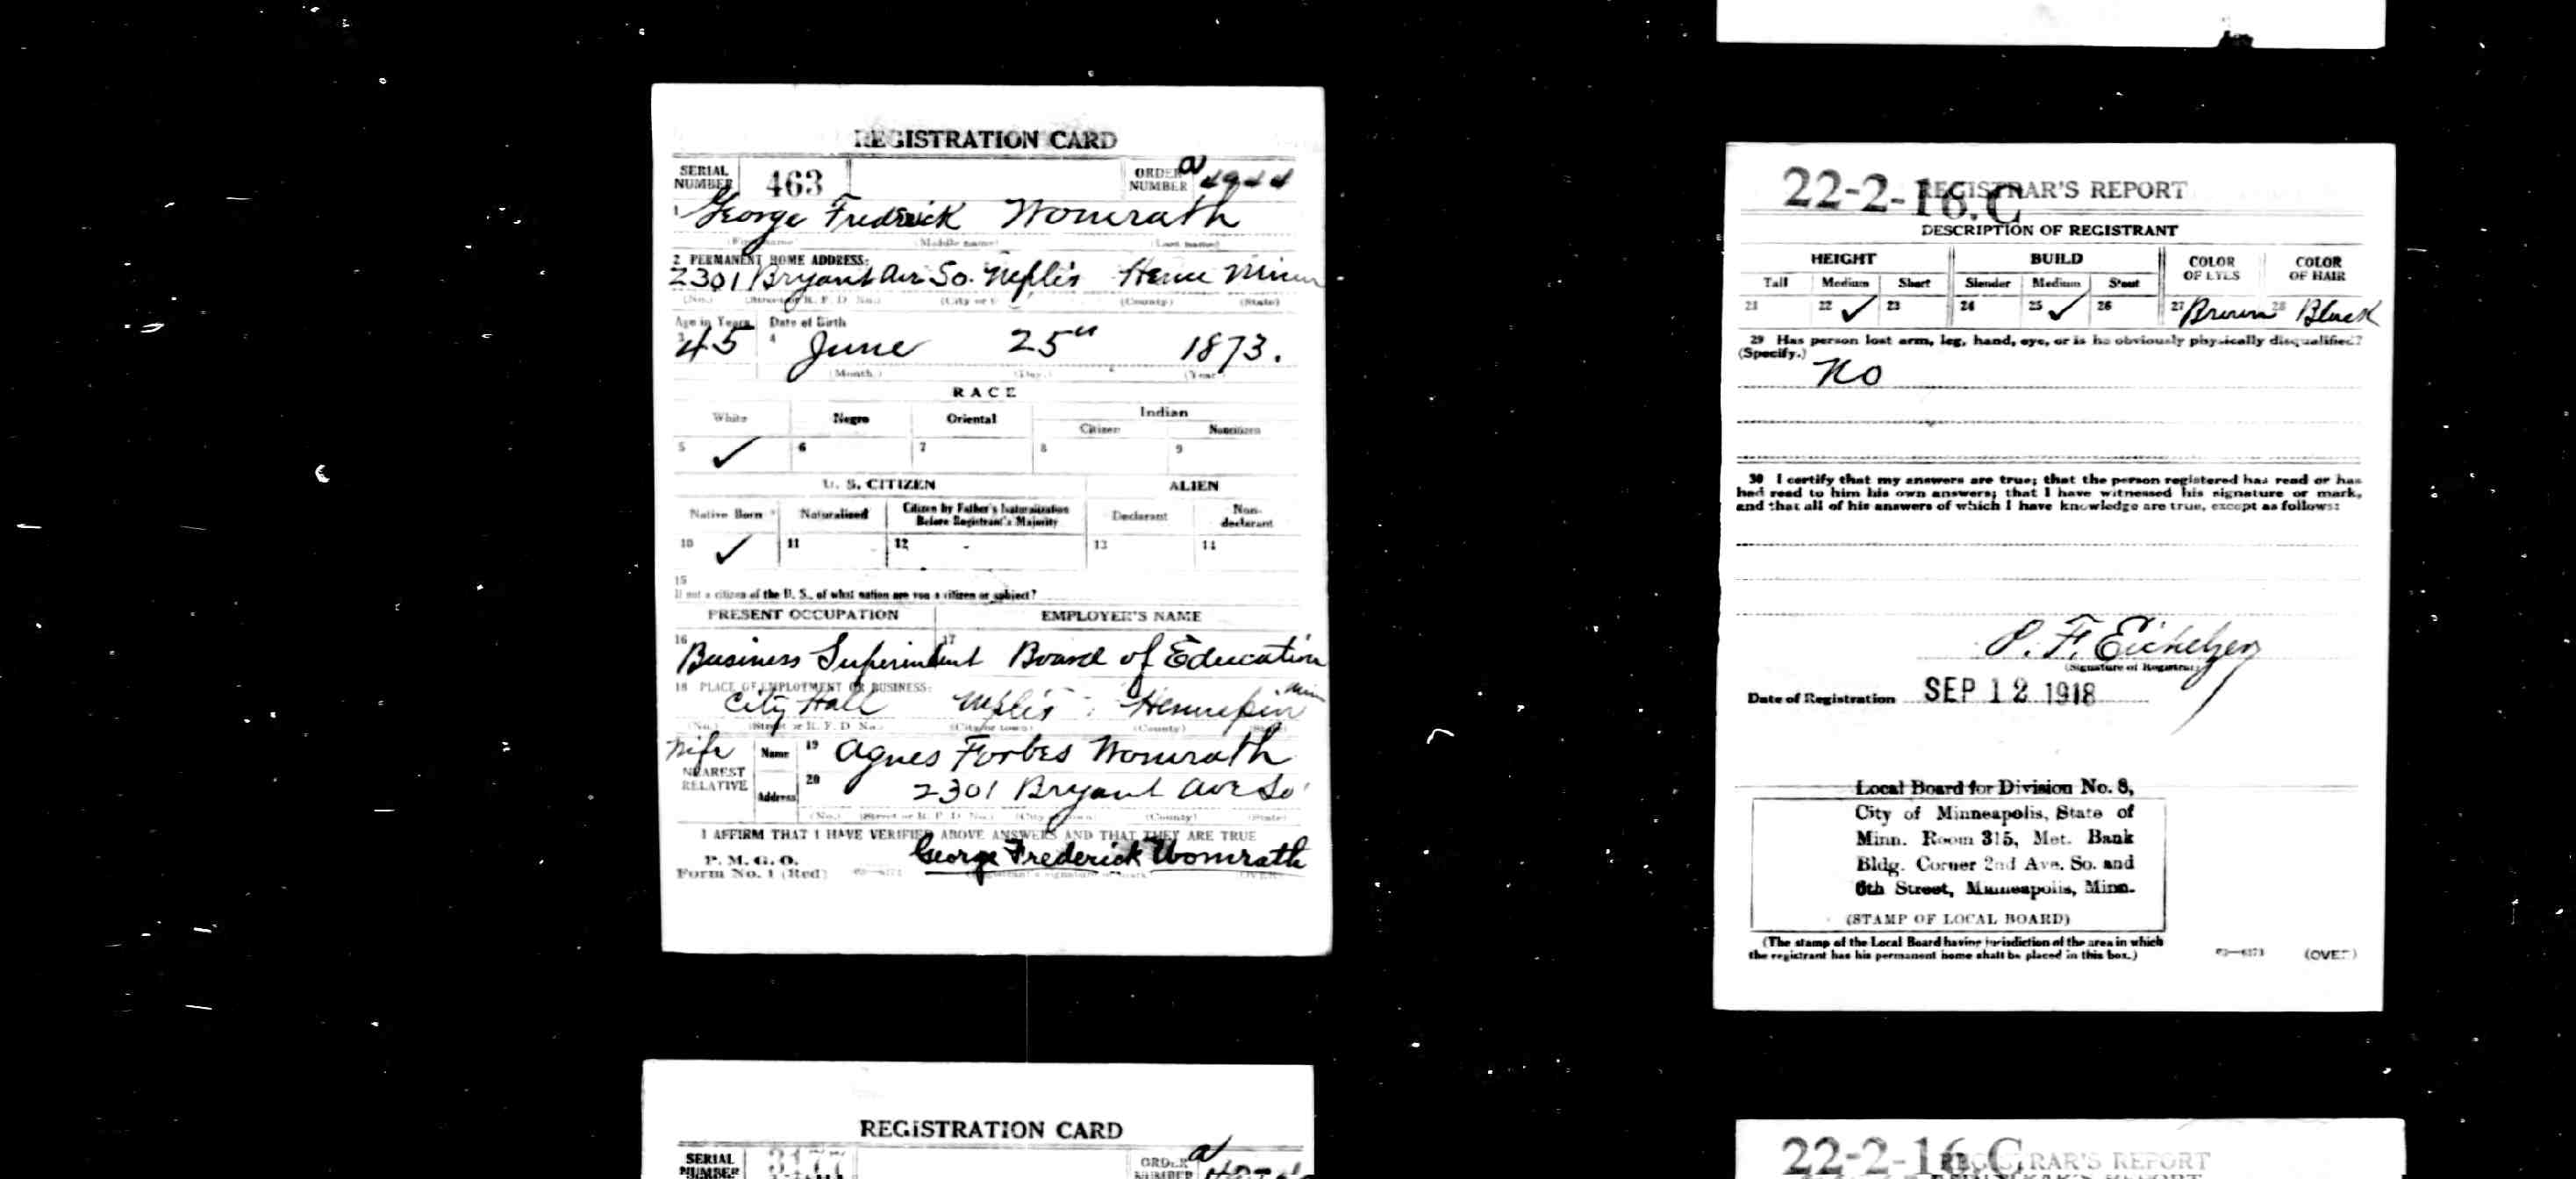 REGISTRATION CARD
SERIAL NUMBER 463 ORDER NUMBER a
1 George Fredrick Womrath
(First name) (Middle name) (Last name)
2 PERMANENT HOME ADDRESS:
2301 Bryant Av So. Mplis Henn Minn
(No.) (Street or R. F. D. No.) (City or (County) (State)
Age in Years Date of Birth
3 45 4 June 25th 1873.
(Month.) (Day.) (Year)
RACE
White Negro Oriental Indian
Citizen Noncitizen
5 ✓ 6 7 8 9
U. S. CITIZEN ALIEN
Native Born Naturalized Citizen by Father's Naturalization Before Registrant's Majority Declarant Non-declarant
10 ✓ 11 12 13 14
15
If not a citizen of the U. S., of what nation are you a citizen or subject?
PRESENT OCCUPATION EMPLOYER'S NAME
16 Business Superintendent 17 Board of Education
18 PLACE OF EMPLOYMENT OR BUSINESS:
City Hall Mplis Hennepin Minn
(No.) (Street or R. F. D. No.) (City or town) (County) (State)
Wife Name 19 Agnes Forbes Womrath
NEAREST RELATIVE
Address 20 2301 Bryant Ave So
(No.) (Street or R. F. D. No.) (City or town) (County) (State)
I AFFIRM THAT I HAVE VERIFIED ABOVE ANSWERS AND THAT THEY ARE TRUE
P. M. G. O.
Form No. 1 (Red) George Frederick Womrath
(Registrant's signature or mark) (OVER)
22-2-16.C
REGISTRAR'S REPORT
DESCRIPTION OF REGISTRANT
HEIGHT BUILD COLOR OF EYES COLOR OF HAIR
Tall Medium Short Slender Medium Stout
21 22 ✓ 23 24 25 ✓ 26 27 Brown 28 Black
29 Has person lost arm, leg, hand, eye, or is he obviously physically disqualified?
(Specify.) No
30 I certify that my answers are true; that the person registered has read or has
had read to him his own answers; that I have witnessed his signature or mark,
and that all of his answers of which I have knowledge are true, except as follows:
P. F.
(Signature of Registrar)
Date of Registration SEP 12 1918
Local Board for Division No. 8,
City of Minneapolis, State of
Minn. Room 315, Met. Bank
Bldg. Corner 2nd Ave. So. and
6th Street, Minneapolis, Minn.
(STAMP OF LOCAL BOARD)
(The stamp of the Local Board having jurisdiction of the area in which
the registrant has his permanent home shall be placed in this box.)
03—6171 (OVER)
REGISTRATION CARD
SERIAL NUMBER 3177 ORDER NUMBER a
22-2-16.C
REGISTRAR'S REPORT